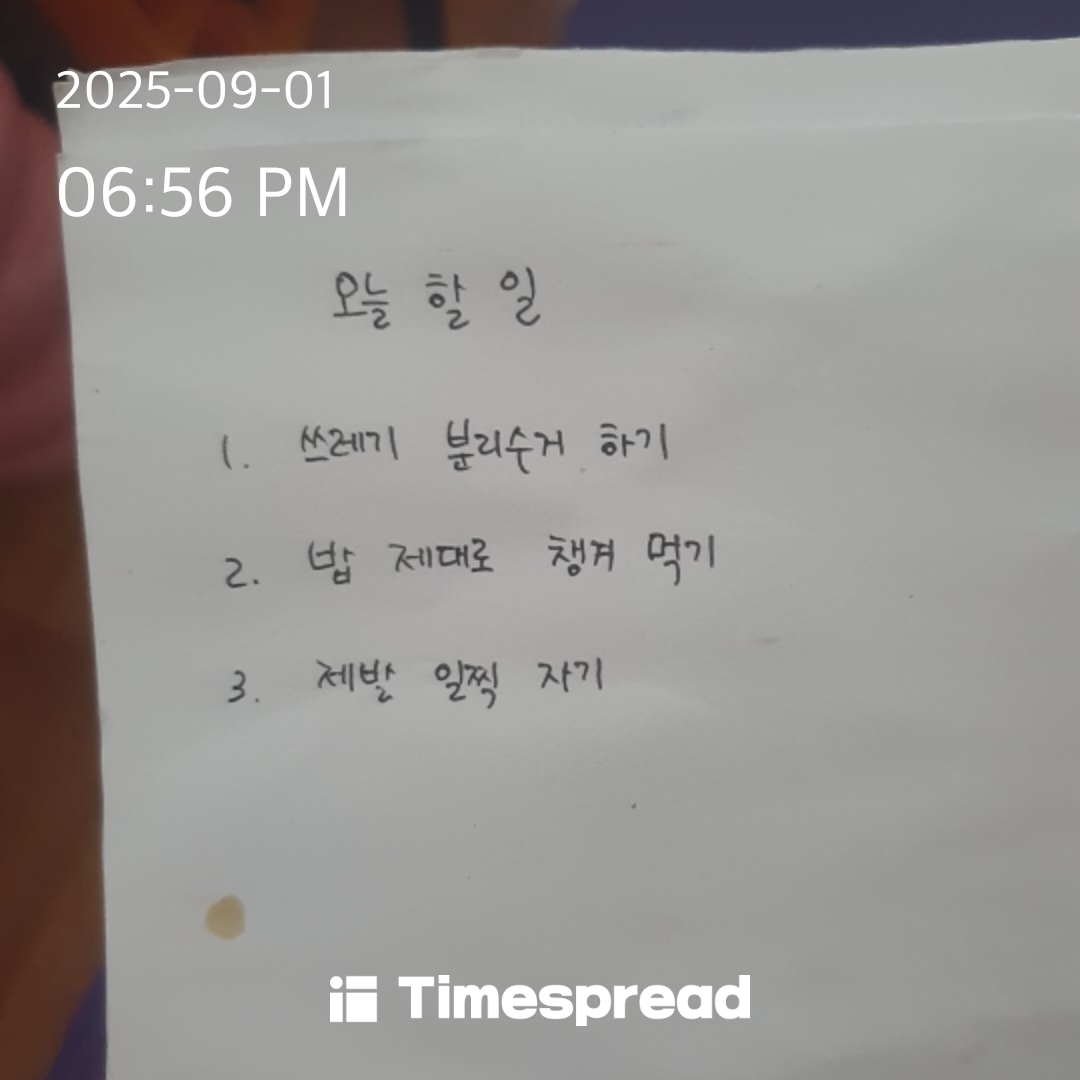 2025-09-01
06:56 PM
오늘 할 일
1. 쓰레기 분리수거 하기
2. 밥 제대로 챙겨 먹기
3. 제발 일찍 자기
Timespread